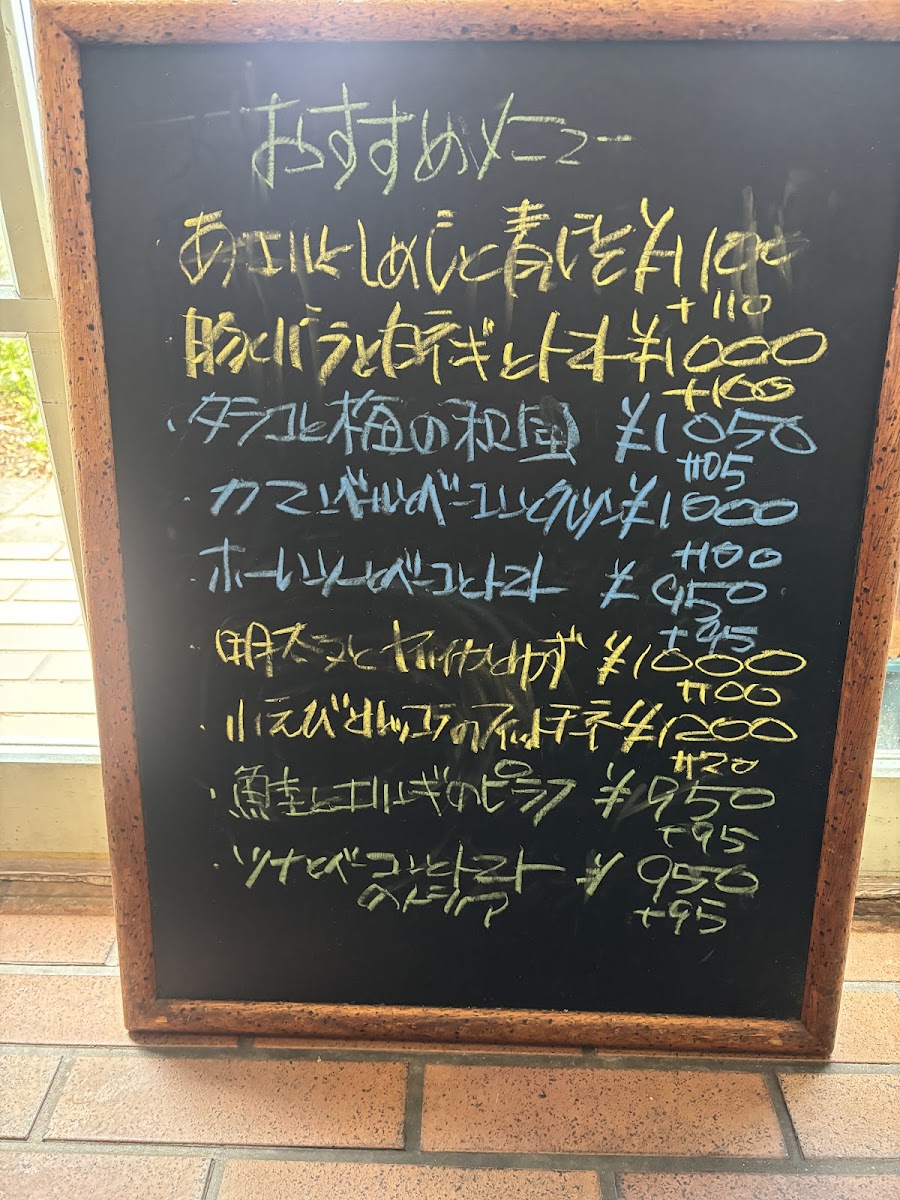 おすすめメニュー
・あさエルとしめじと青じそ ¥1100
+110
豚バラと白ネギとトマト ¥1000
+100
・タラコと梅の和風 ¥1050
+105
・カマンベールとベーコンと ¥1000
+100
・ホーレンソーとベーコンとトマト ¥950
+95
・明太子と ¥1000
+100
・小えびとルッコラのフィットチネ ¥1200
+120
・鮭とエリンギのピラフ ¥950
+95
・ツナとベーコンとトマト ¥950
の +95